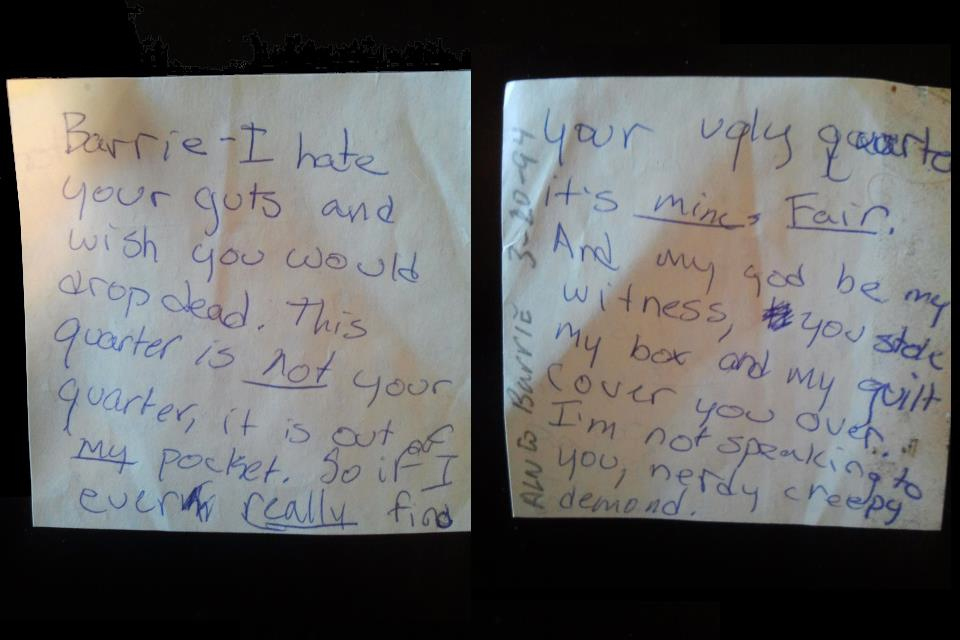 Barrie - I hate
your guts and
wish you would
drop dead. This
quarter is not your
quarter, it is out of
my pocket. So if I
ever really find
your ugly quarte
it's mine, Fair.
And my god be my
witness, you stole
my box and my guilt
cover you over...
I'm not speaking to
you, nerdy creepy
demond.
BARRIE 3-20-94